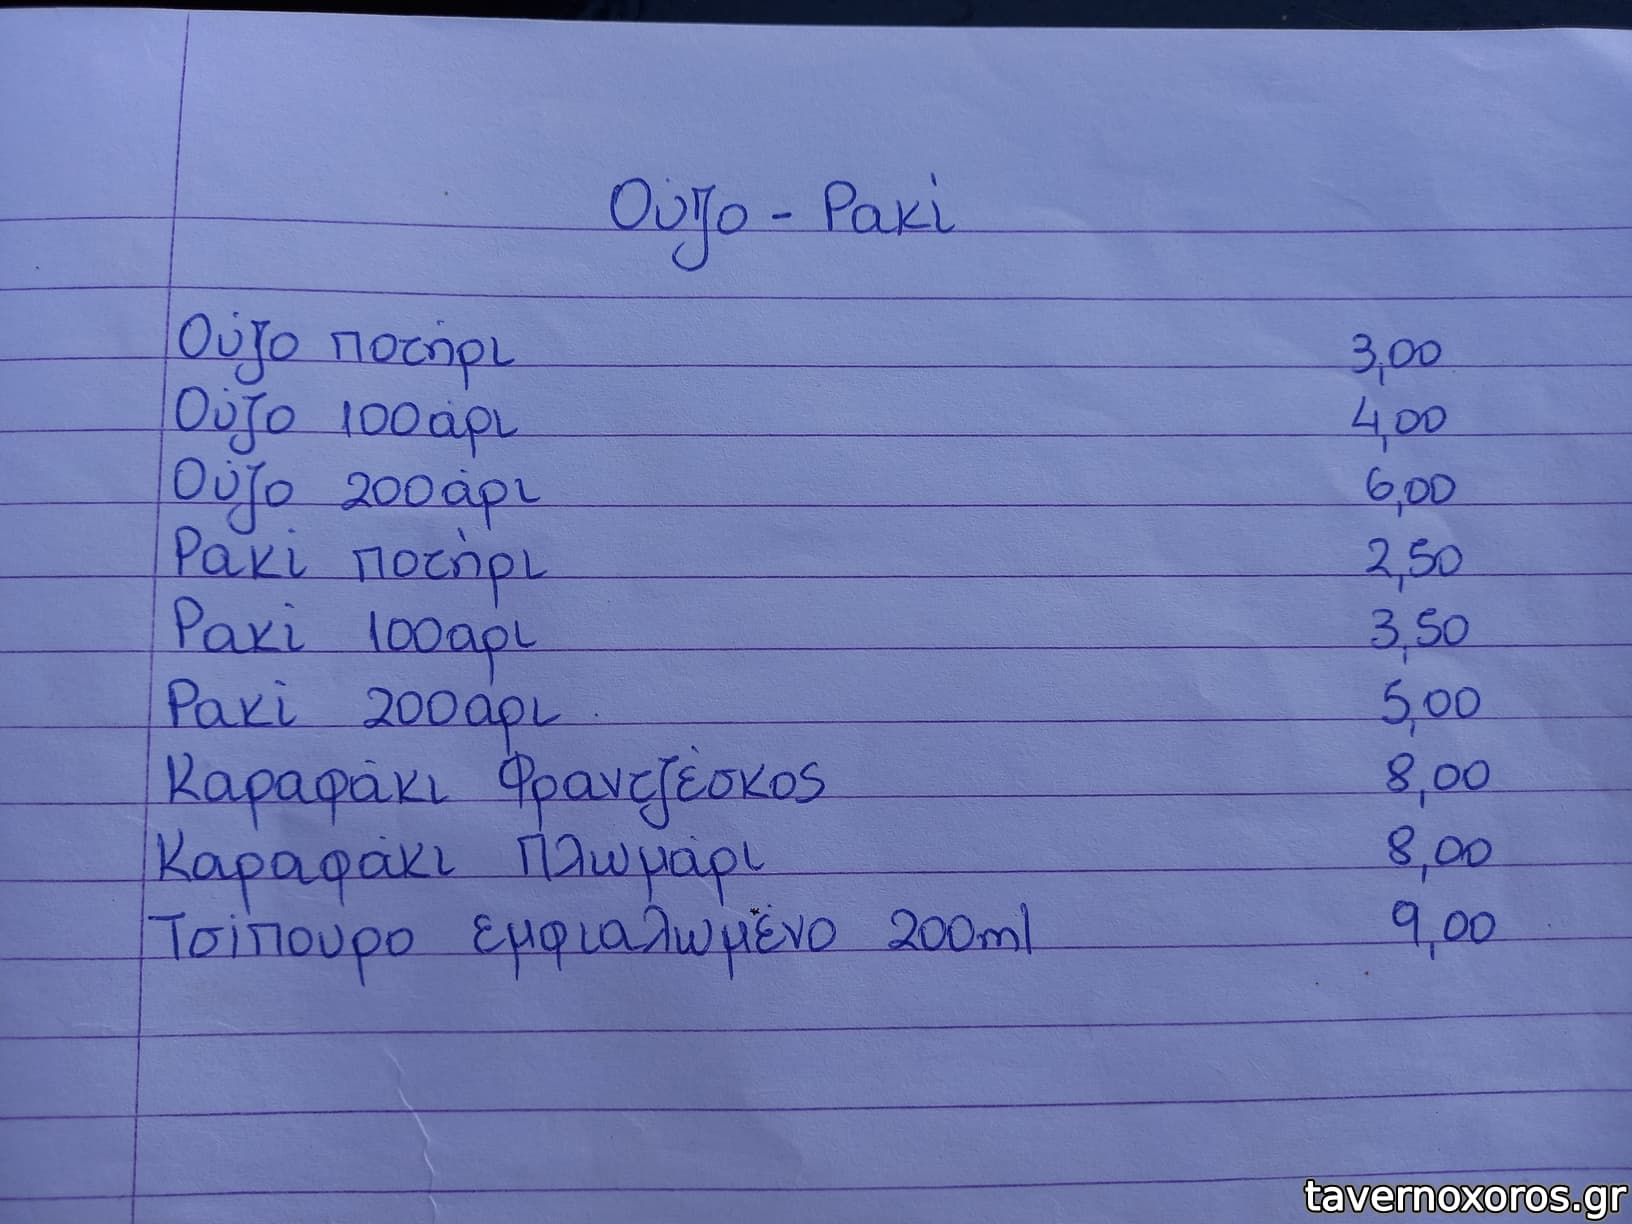 Ούζο - Ρακί
Ούζο ποτήρι 3,00
Ούζο 100άρι 4,00
Ούζο 200άρι 6,00
Ρακί ποτήρι 2,50
Ρακί 100αρι 3,50
Ρακί 200αρι 5,00
Καραφάκι Φραντζέσκος 8,00
Καραφάκι Πλωμάρι 8,00
Τσίπουρο εμφιαλωμένο 200ml 9,00
tavernoxoros.gr